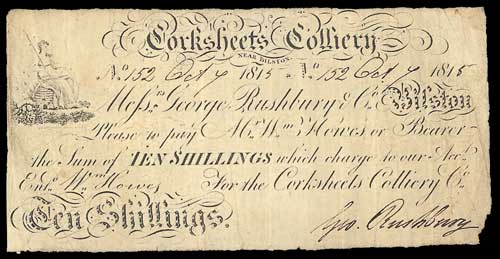 Corksheets Colliery
NEAR BILSTON.
No. 152 Oct 7 1815 - No. 152 Oct 7 1815
Messrs. George Rushbury & Co. Bilston
Please to pay Mr. Wm. Howes or Bearer
the Sum of TEN SHILLINGS which charge to our Acct.
Entd. Wm. Howes For the Corksheets Colliery Co.
Ten Shillings. Geo. Rushbury